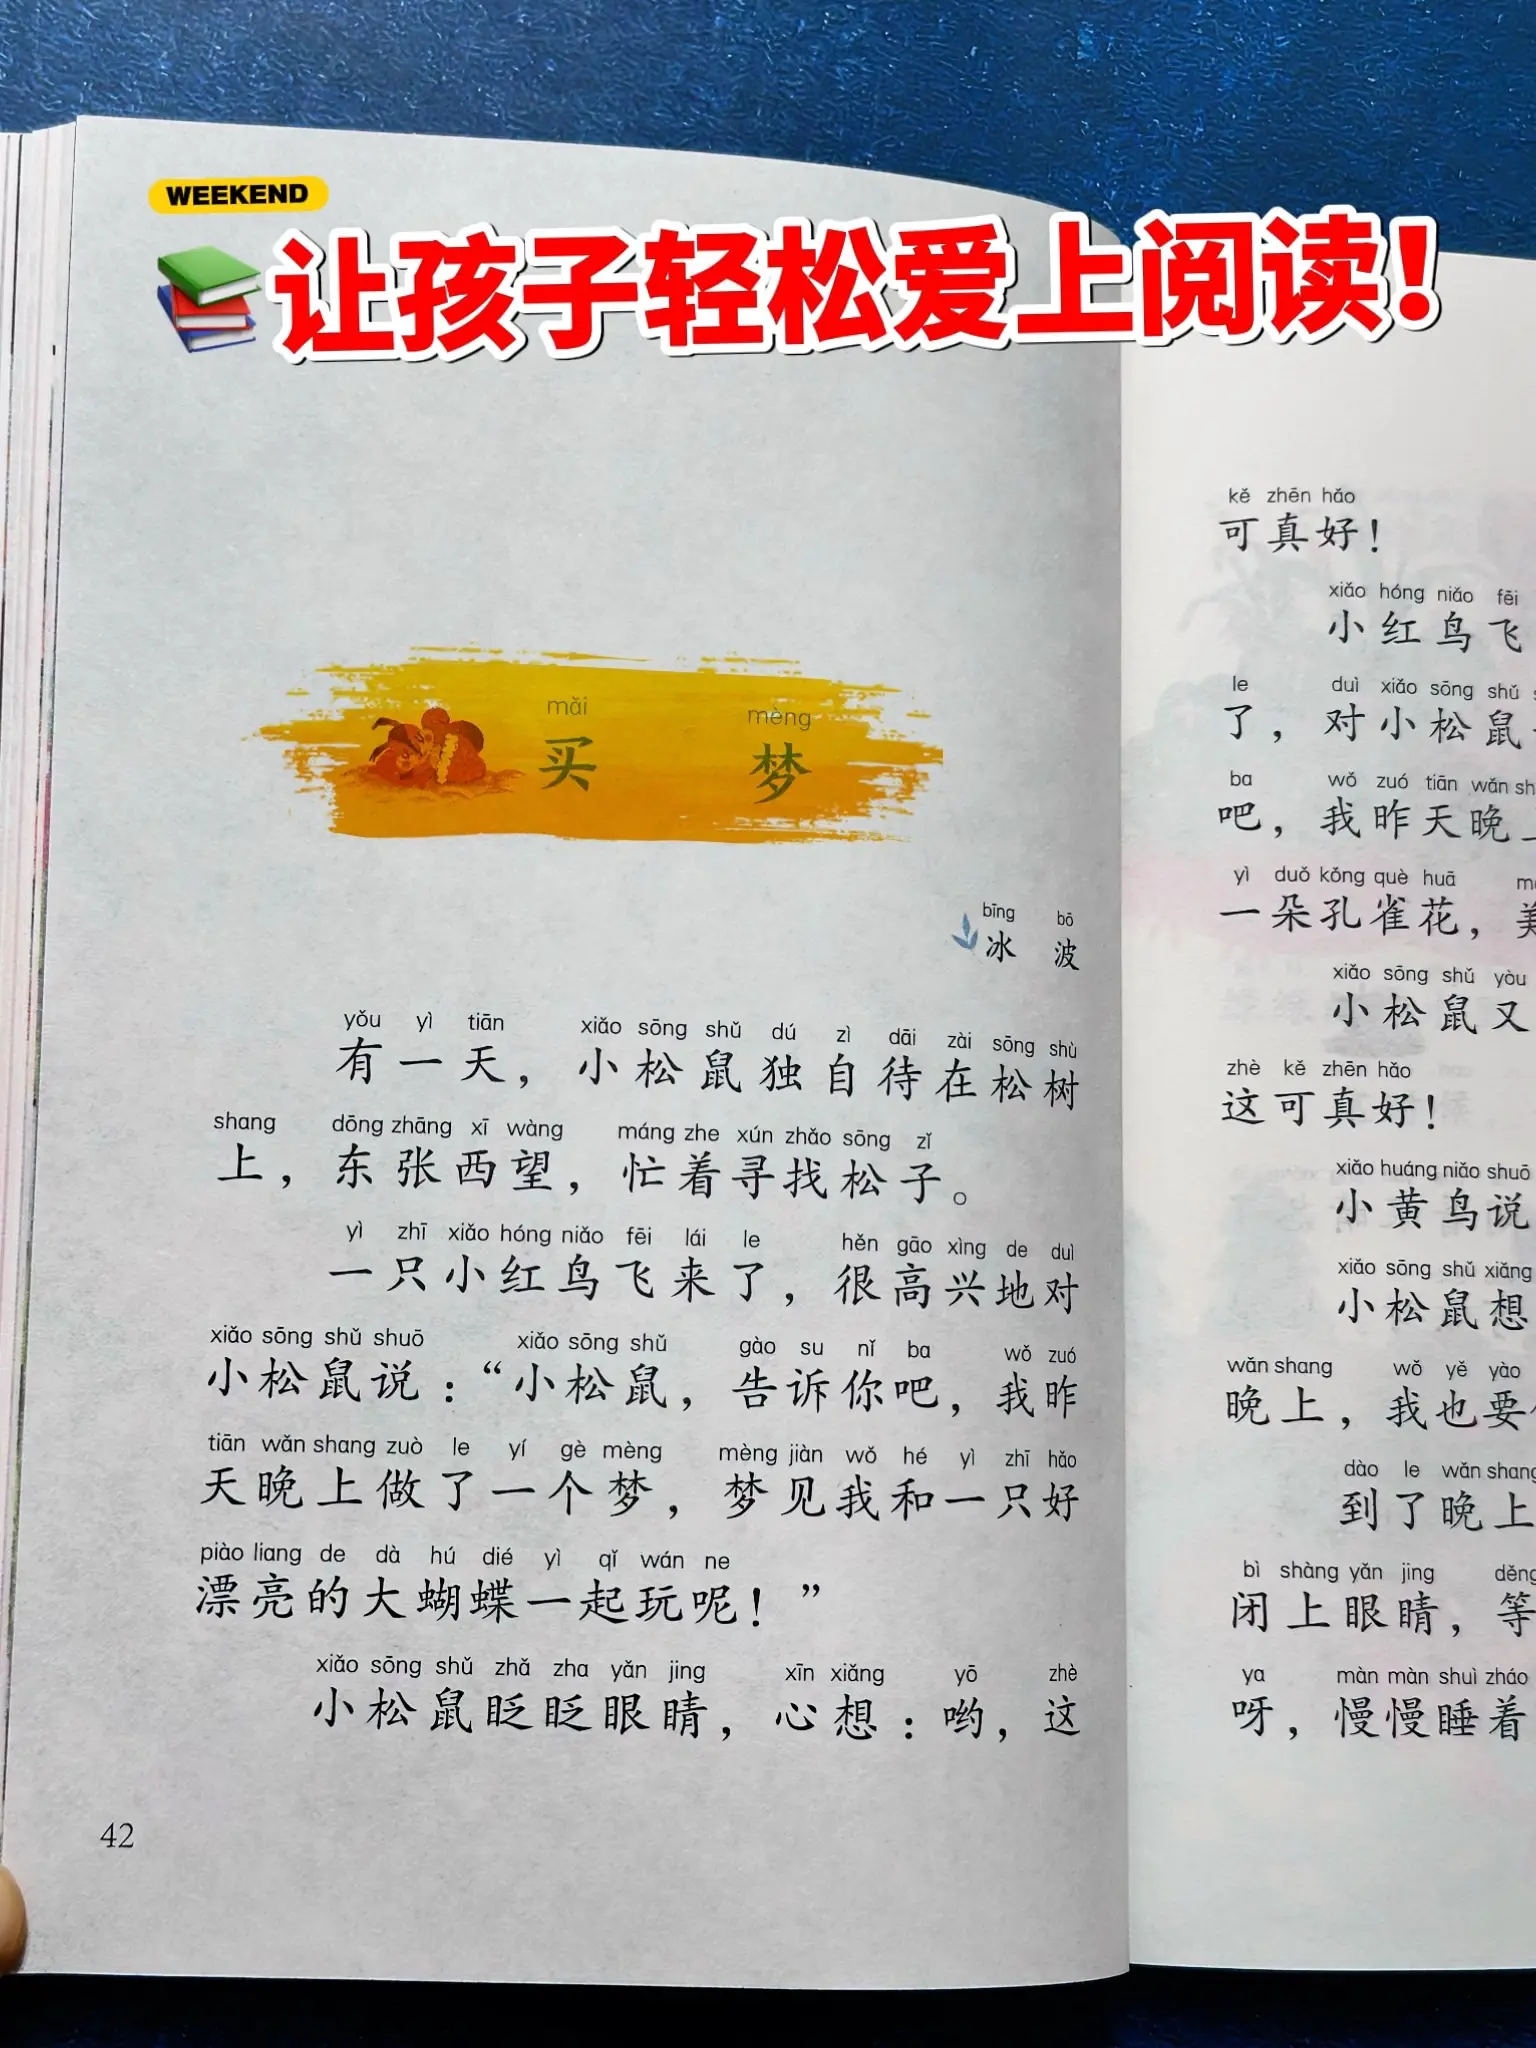 WEEKEND
让孩子轻松爱上阅读！
mǎi mèng
买 梦
bīng bō
冰 波
yǒu yì tiān xiǎo sōng shǔ dú zì dāi zài sōng shù
有一天，小松鼠独自待在松树
shang dōng zhāng xī wàng máng zhe xún zhǎo sōng zǐ
上，东张西望，忙着寻找松子。
yì zhī xiǎo hóng niǎo fēi lái le hěn gāo xìng de duì
一只小红鸟飞来了，很高兴地对
xiǎo sōng shǔ shuō xiǎo sōng shǔ gào su nǐ ba wǒ zuó
小松鼠说：“小松鼠，告诉你吧，我昨
tiān wǎn shang zuò le yí gè mèng mèng jiàn wǒ hé yì zhī hǎo
天晚上做了一个梦，梦见我和一只好
piào liang de dà hú dié yì qǐ wán ne
漂亮的大蝴蝶一起玩呢！”
xiǎo sōng shǔ zhǎ zha yǎn jing xīn xiǎng yō zhè
小松鼠眨眨眼睛，心想：哟，这
42
kě zhēn hǎo
可真好！
xiǎo hóng niǎo fēi
小红鸟飞
le duì xiǎo sōng shǔ
了，对小松鼠
ba wǒ zuó tiān wǎn sh
吧，我昨天晚上
yì duǒ kǒng què huā
一朵孔雀花，美
xiǎo sōng shǔ yòu
小松鼠又
zhè kě zhēn hǎo
这可真好！
xiǎo huáng niǎo shuō
小黄鸟说
xiǎo sōng shǔ xiǎng
小松鼠想
wǎn shang wǒ yě yào
晚上，我也要
dào le wǎn shang
到了晚上
bì shàng yǎn jing děng
闭上眼睛，等
ya màn màn shuì zháo
呀，慢慢睡着